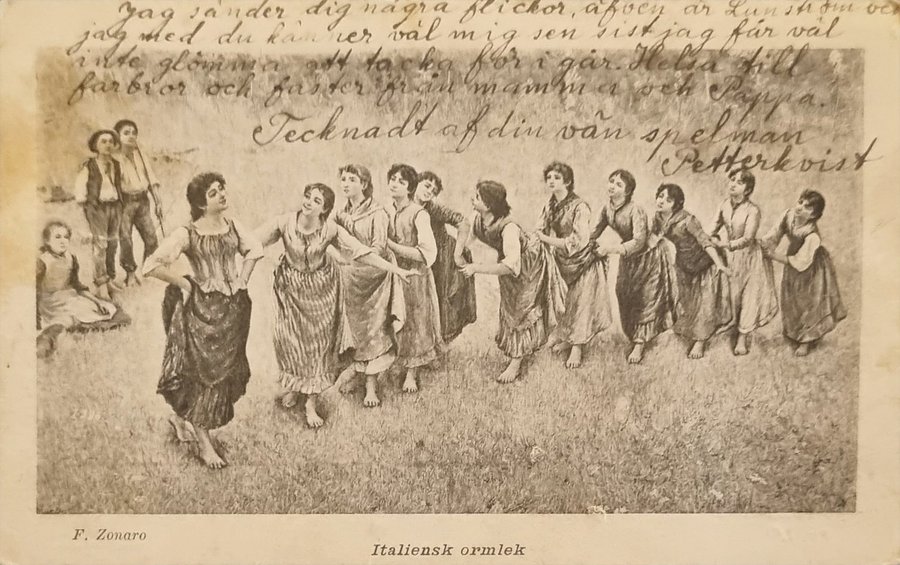 Jag sänder dig några flickor, äfven är Lunström och
jag med du känner väl mig sen sist jag får väl
inte glömma att tacka för i går. Helsa till
farbror och faster från mamma och Pappa.
Tecknadt af din vän spelman
Petterkvist
F. Zonaro
Italiensk ormlek